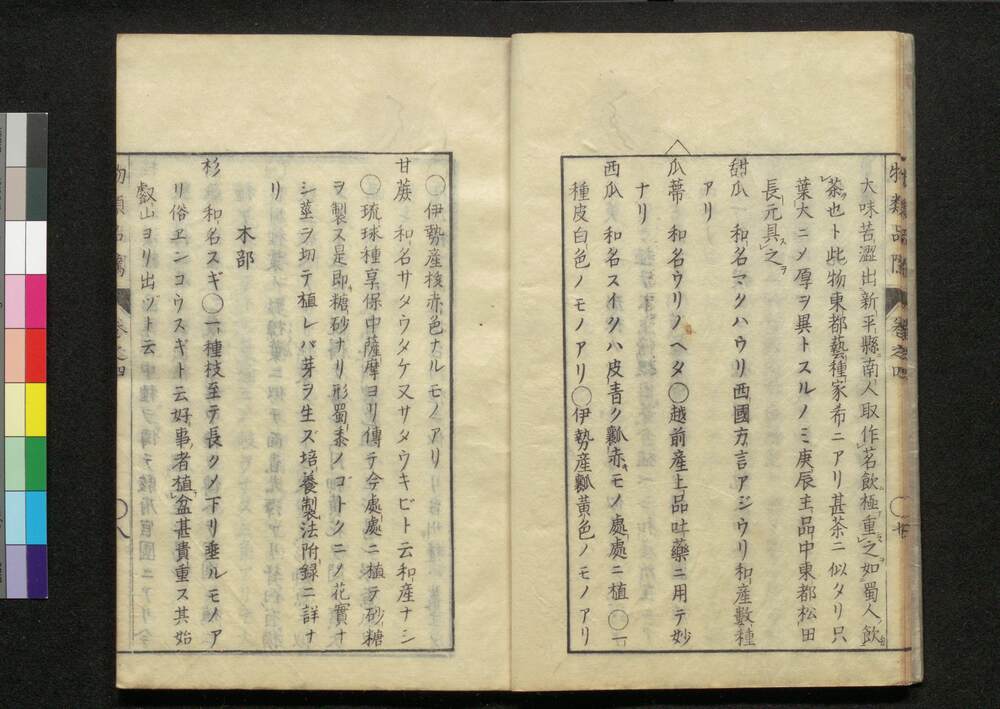 物類品隲 卷之四
大味苦澀出新平縣南人取作茗飲極重之如蜀人飲
茶也ト此物東都藝種家希ニアリ甚茶ニ似タリ只
葉大ニメ厚ヲ異トスルノミ庚辰主品中東都松田
長元具之
甜瓜 和名マクハウリ西國方言アジウリ和産數種
アリ
瓜蔕 和名ウリノヘタ〇越前産上品吐藥ニ用テ妙
ナリ
西瓜 和名スイクハ皮青ク瓤赤モノ處處ニ植〇一
種皮白色ノモノアリ〇伊勢産瓤黄色ノモノアリ
〇伊勢産核赤色ナルモノアリ
甘蔗 和名サタウダケ又サタウキビト云和産ナシ
〇琉球種享保中薩摩ヨリ傳テ今處處ニ植テ砂糖
ヲ製ス是即糖砂ナリ形蜀黍ノゴトクニメ花實ナ
シ莖ヲ切テ植レバ芽ヲ生ズ培養製法附録ニ詳ナ
リ
木部
杉 和名スギ〇一種枝至テ長クメ下リ埀ルモノア
リ俗ヱンコウスギト云好事者植盆甚貴重ス其始
叡山ヨリ出ヅト云
卷之四